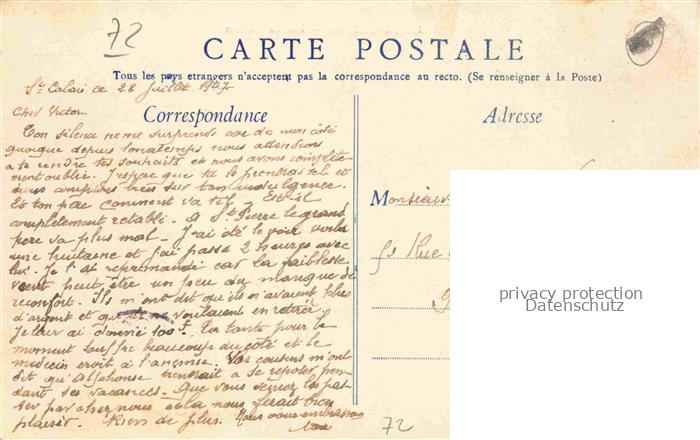 72
CARTE POSTALE
Tous les pays etrangers n'acceptent pas la correspondance au recto. (Se renseigner à la Poste)
St Calais ce 22 Juillet 1927
Correspondance
Adresse
Cher Victor.
Ton silence ne me surprends car de mon côté
quoique depuis longtemps nous attendions
à te rendre tes souhaits et nous avons complète-
ment oublié. J'espère que tu le prendras tel et
nous comptons bien sur ton indulgence.
Et ton père comment va t'il. Est-il
complètement retabli. A St Pierre le grand
père va plus mal. J'ai été le voir voila
une huitaine et j'ai passé 2 heures avec
lui. Je l'ai reprimandé car la faiblesse
vient peut être un peu du manque de
reconfort. Ils m'ont dit qu'ils n'avaient plus
d'argent et que ne voulaient en retirer
Je leur ai donné 100f. Ta tante pour le
moment souffre beaucoup du côté et le
medecin croit à l'angine. Vos cousins m'ont
dit qu'Alphonse viendrait se reposer pen
dant ses vacances. Que vous deviez les pas
ser par chez nous cela nous ferait bien
plaisir. Rien de plus. Nous vous embrassons
tous
Monsieur
51 Rue
privacy protection
Datenschutz
72